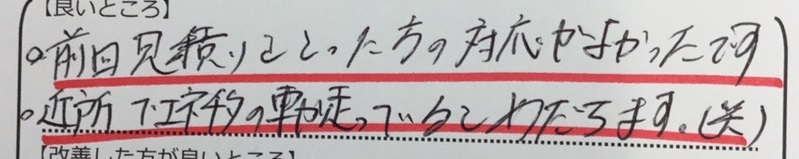 【良いところ】
○前回見積りをとった方の対応がよかったです
○近所でエネチタの車が走っているとわだちます。(笑)
【改善した方が良いところ】